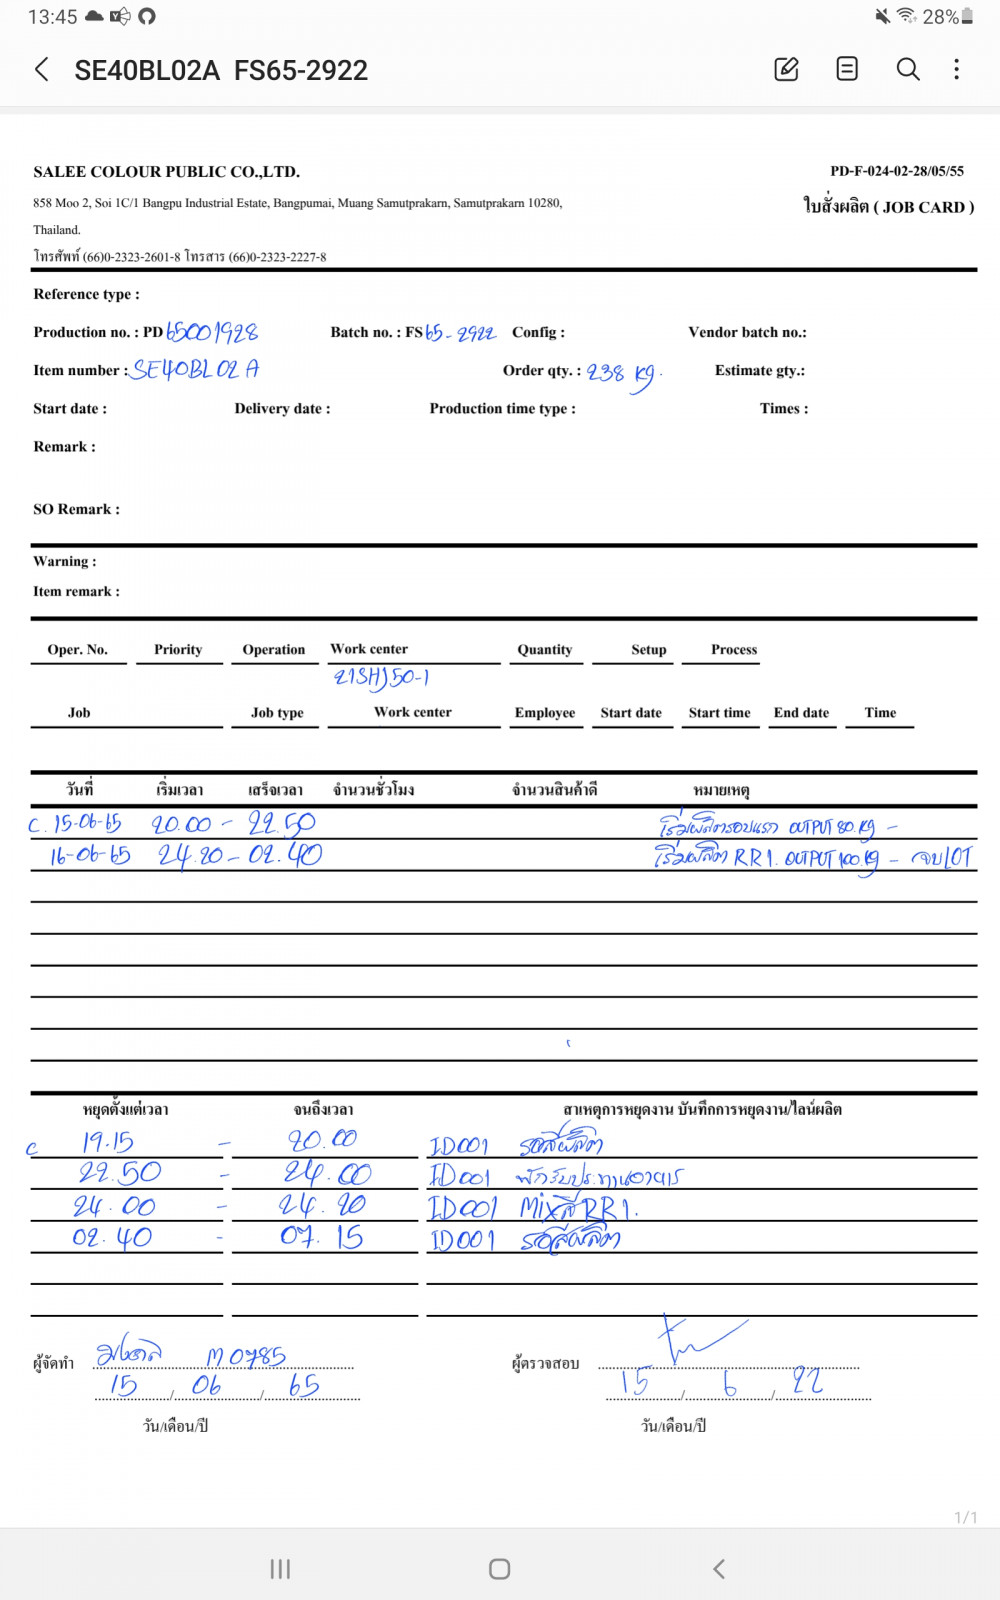 13:45 28%
SE40BL02A FS65-2922
SALEE COLOUR PUBLIC CO.,LTD. PD-F-024-02-28/05/55
858 Moo 2, Soi 1C/1 Bangpu Industrial Estate, Bangpumai, Muang Samutprakarn, Samutprakarn 10280, ใบสั่งผลิต ( JOB CARD )
Thailand.
โทรศัพท์ (66)0-2323-2601-8 โทรสาร (66)0-2323-2227-8
Reference type :
Production no. : PD 65001928 Batch no. : FS 65-2922 Config : Vendor batch no.:
Item number : SE40BL02A Order qty. : 238 kg. Estimate gty.:
Start date : Delivery date : Production time type : Times :
Remark :
SO Remark :
Warning :
Item remark :
Oper. No. Priority Operation Work center Quantity Setup Process
21SHJ50-1
Job Job type Work center Employee Start date Start time End date Time
วันที่ เริ่มเวลา เสร็จเวลา จำนวนชั่วโมง จำนวนสินค้าดี หมายเหตุ
C. 15-06-65 20.00 - 22.50 เริ่มผลิตรอบแรก OUTPUT 80.kg -
16-06-65 24.20 - 02.40 เริ่มผลิต RR1. OUTPUT 100.kg - จบ LOT
หยุดตั้งแต่เวลา จนถึงเวลา สาเหตุการหยุดงาน บันทึกการหยุดงาน/ไลน์ผลิต
C 19.15 - 20.00 ID001 รอสีผลิต
22.50 - 24.00 ID001 พักรับประทานอาหาร
24.00 - 24.20 ID001 Mixสี RR1.
02.40 - 07.15 ID001 รอสีผลิต
ผู้จัดทำ M0785 ผู้ตรวจสอบ
15 / 06 / 65 15 / 6 / 22
วัน/เดือน/ปี วัน/เดือน/ปี
1/1